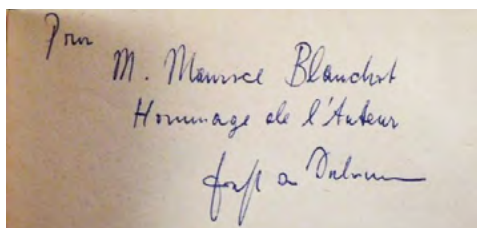 Pour
M. Maurice Blanchot
Hommage de l'Auteur